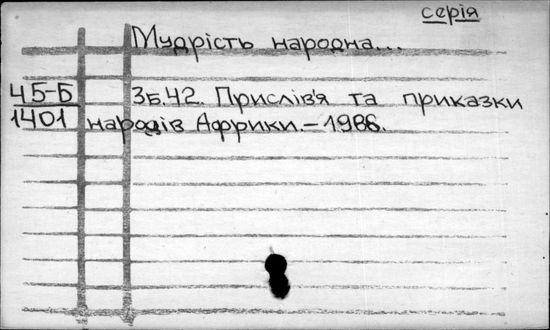 серія
Мудрість народна...
45-Б
1401
Зб.42. Прислів'я та приказки
народів Африки.-1986.